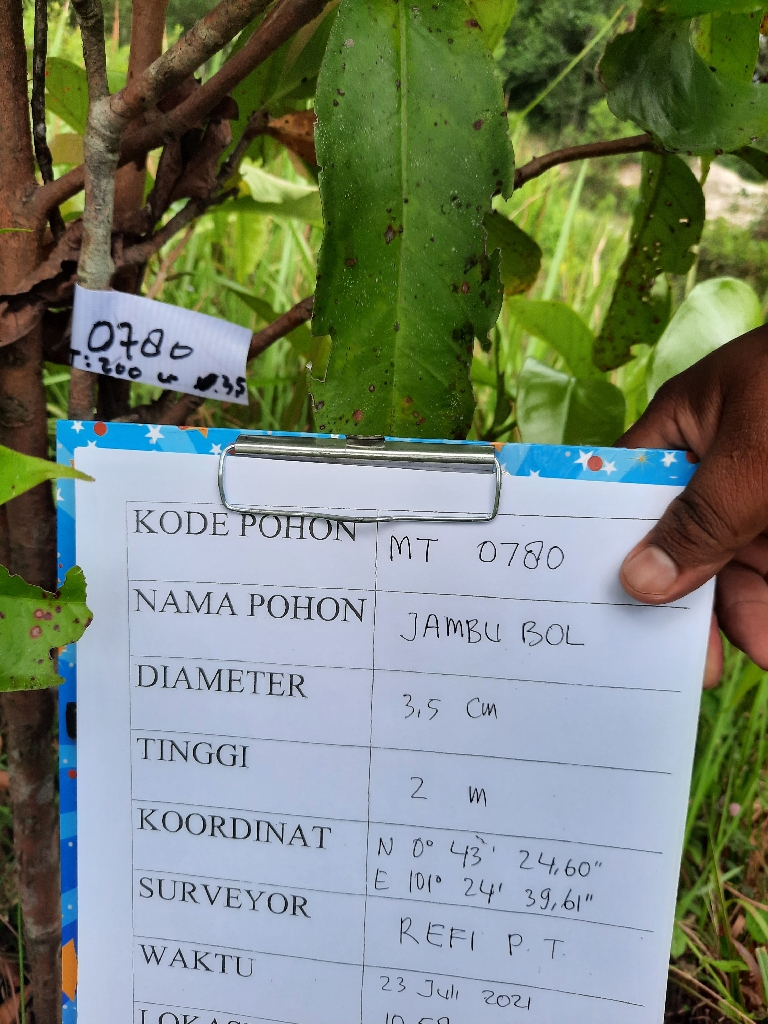 0780
T: 200 3,5
KODE POHON MT 0780
NAMA POHON JAMBU BOL
DIAMETER 3,5 cm
TINGGI 2 m
KOORDINAT N 0° 43' 24,60"
E 101° 24' 39,61"
SURVEYOR REFI P.T.
WAKTU 23 Juli 2021